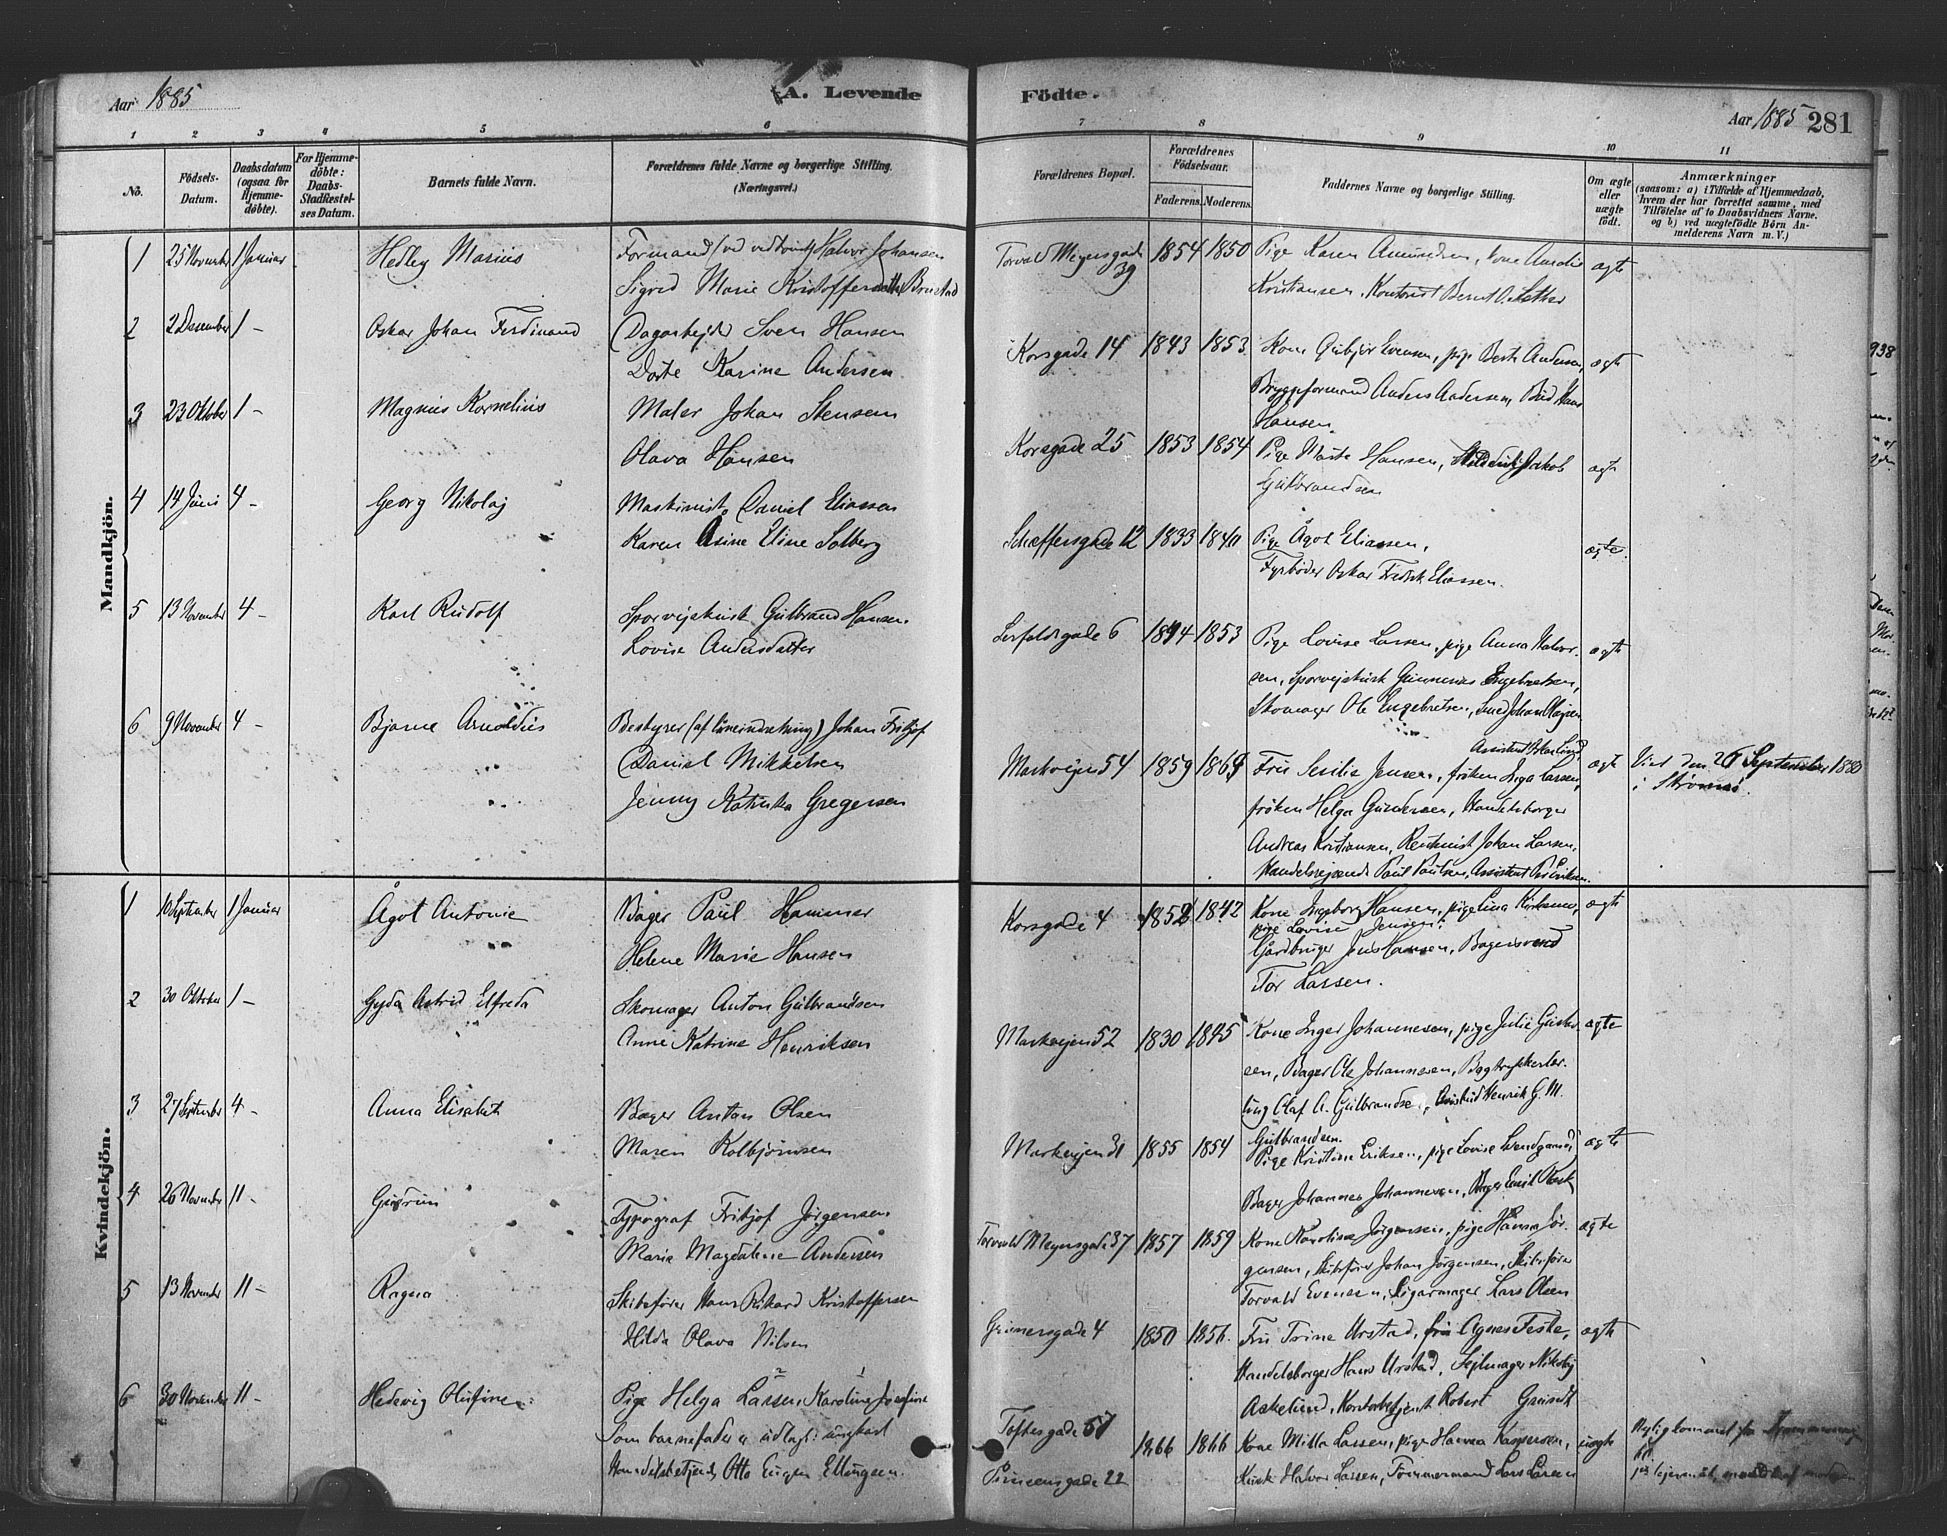 Aar 1885
A. Levende
Födte.
Aar 1885
281
1 2 3 4 5 6 7 8 9 10 11
No.
Födsels-
Datum.
Daabsdatum
(ogsaa for
Hjemme-
döbte).
For Hjemme-
döbte:
Daabs-
Stadfæstel-
ses Datum.
Barnets fulde Navn.
Forældrenes fulde Navne og borgerlige Stilling.
(Næringsvei.)
Forældrenes Bopæl.
Forældrenes
Födselsaar.
Faderens. Moderens.
Faddernes Navne og borgerlige Stilling.
Om ægte
eller
uægte
födt.
Anmærkninger
(saasom: a) i Tilfælde af Hjemmedaab,
hvem der har forrettet samme, med
Tilföielse af to Daabsvidners Navne,
og b) ved uægtefödte Börn An-
melderens Navn m. V.)
Mandkjön.
1 25 November 1 Januar Hedley Marius
Halvor Johansen
Sigrid Marie Kristoffersdatter
Torvald Meyersgade 39 1854 1850 Pige Karen Amundsen, kone Amalie
Kristiansen, Kontorist Bernt O. Sæther
ægte
2 2 Desember 1 - Oskar Johan Ferdinand Dagarbejder Sven Hansen
Dorte Karine Andersen.
Korsgade 14 1843 1853. Kone Gubjør Evensen, pige Berte Andersen,
Bryggeformand Anders Andersen, Bud Hans
Hansen.
ægte
3 23 Oktober 1 - Magnus Kornelius Maler Johan Stensen
Olava Hansen
Korsgade 25 1853 1854 Pige Marte Hansen, Jakob
Gulbrandsen
ægte
4 14 Juni 4 - Georg Nikolaj Maskinist Daniel Eliassen
Karen Asine Eline Solberg
Schæffersgade 12 1833 1840 Pige Ågot Eliassen,
Fyrbøder Oskar Fredrik Eliassen.
ægte
5 13 November 4 - Karl Rudolf Sporvejskusk Gulbrand Hansen
Lovise Andersdatter
6 1853 Pige Lovise Larsen, pige Anna Halvor-
sen, Sporvejskusk Gunnerius Engebretsen,
Skomager Ole Engebretsen, Smed Johan
ægte
6 9 November 4 - Bjarne Arnoldus Bestyrer Johan Fritjof
Daniel Mikkelsen
Jenny Katinka Gregersen
Markvejen 54 1859 Fru Sesilie Jensen, frøken Inga Larsen,
frøken Helga Gundersen, Handelsborger
Andreas Kristiansen, Rentenist Johan Larsen,
Handelsrejsende Paul Paulsen, Assistent
ægte
Viet den September 1880
i Strømsø.
Kvindekjön.
1 10 September 1 Januar Ågot Antonie Bager Paul Hammer
Helene Marie Hansen
Korsgade 4 1852 1842 Kone Ingeborg Hansen, pige Lina
pige Lovise Jensen,
Gårdbruger Jens Hansen, Bagersvend
Tor Larsen.
ægte
2 30 Oktober 1 - Gyda Astrid Elfreda Skomager Anton Gulbrandsen
Anne Katrine Henriksen
Markvejen 52 1830 1845 Kone Inger Johannesen, pige Julie
sen, Bager Ole Johannesen, Bogtrykkerlær-
ling Olaf A. Gulbrandsen, Henrik G. M.
Gulbrandsen.
ægte
3 27 September 4 - Anna Elisabet Bager Anton Olsen
Maren Kolbjørnsen
Markvejen 31 1855 1854 Pige Kristine Eriksen, pige Lovise
Bager Johannes Johannesen, Bager Emil
ægte
4 26 November 11 - Gudrun Typograf Fritjof Jørgensen
Marie Magdalene Andersen
Torvald Meyersgade 37 1857 1859 Kone Karoline Jørgensen, pige Hanna Jør-
gensen, Skibsfører Johan Jørgensen, Skibsfører
Torvald Evensen, Sigarmager Lars Olsen
ægte
5 13 November 11 - Ragna Skibsfører Hans Rikard Kristoffersen
Hilda Olava Nilsen
Grünersgade 4 1850 1856. Fru Trine Urstad, fru Agnes Feste,
Handelsborger Hans Urstad, Sejlmager Nikolaj
Askelund, Kontorbetjent Robert
ægte
6 30 November 11 - Hedevig Olufine Pige Helga Larsen, Karoline Josefine
Som barnefader er udlagt: ungkarl
Handelsbetjent Otto Eugen Ellingsen.
Toftesgade
Prinsensgade 22
1866 1866 Kone Milla Larsen, pige Hanna Kaspersen,
Kusk Halvor Larsen, Tømmermand Lars Larsen
uægte